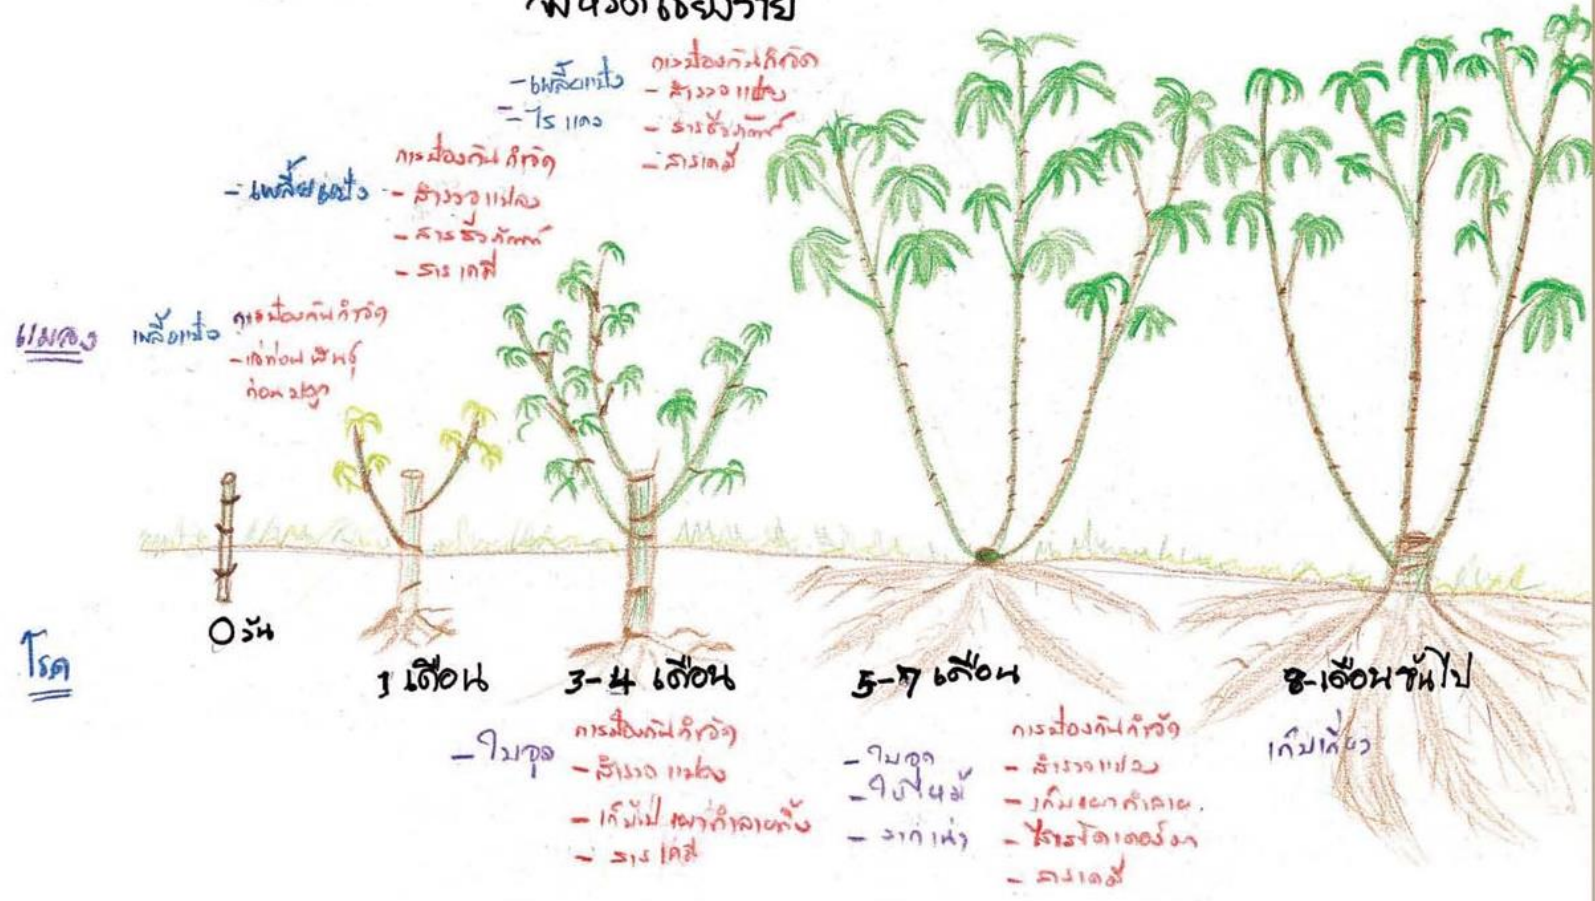 จังหวัดเชียงราย
- เพลี้ยแป้ง
- ไรแดง
การป้องกันกำจัด
- สำรวจแปลง
- สารชีวภัณฑ์
- สารเคมี
- เพลี้ยแป้ง
การป้องกันกำจัด
- สำรวจแปลง
- สารชีวภัณฑ์
- สารเคมี
แมลง
เพลี้ยแป้ง
การป้องกันกำจัด
- แช่ท่อนพันธุ์
ก่อนปลูก
0 วัน
1 เดือน
3-4 เดือน
5-7 เดือน
8-เดือนขึ้นไป
โรค
- ใบจุด
การป้องกันกำจัด
- สำรวจแปลง
- เก็บไปเผาทำลายทิ้ง
- สารเคมี
- ใบจุด
- ใบไหม้
- รากเน่า
การป้องกันกำจัด
- สำรวจแปลง
- เก็บเผาทำลาย.
- ไตรโคเดอร์มา
- สารเคมี
เก็บเกี่ยว